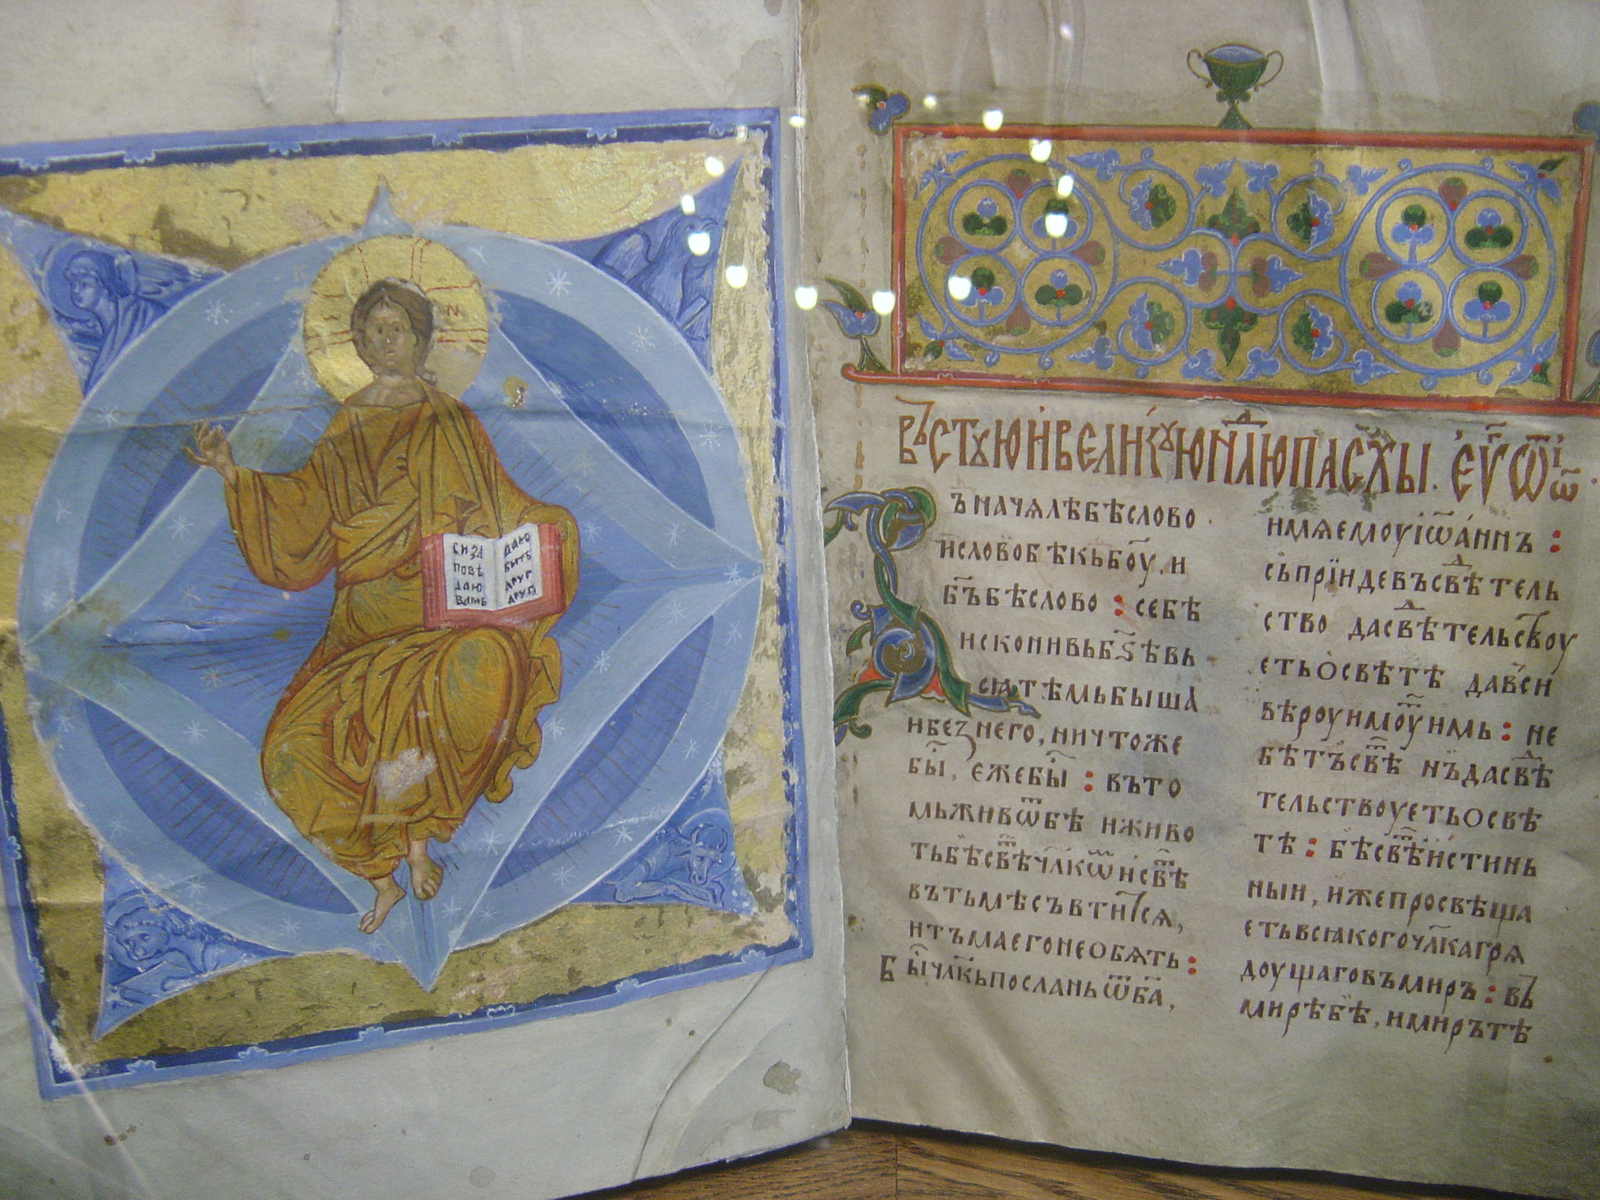 си за
повѣ
даю
вамь
даю
быть
друг
друг
Въ ст҃ꙋю и великꙋю нд҃лю пасхы. еѵг҃ ѿ іѡ҃
ъначѧлѣбѣслово ·
исловобѣкъбо҃у, и
б҃ъбѣслово : себѣ
исконивьб҃ꙃѣвь
сꙗтѣмьбыша
ибезнего, ничтоже
бы҃, ежебы҃ : въто
мьживѿбѣ иживо
тьбѣсвѣ҃члк҃ѿисвѣ҃
вътьмѣсъвтитсѧ,
итъмаегонеобѧть :
Бы҃члк҃ьпосланьѿб҃а,
имѧемоуіѡ҃аннъ :
сьпріидевъсвѣ҃тель
ство дасвѣ҃тельствоу
етьосвѣтѣ давси
вѣроуимоу҃имь : не
бѣтъсвѣ҃ нъдасвѣ҃
тельствоуетьосвѣ
тѣ : бѣсвѣ҃истинь
ныи, ижепросвѣща
етьвсꙗкогочлк҃агрѧ
доущаговъмиръ : въ
мирѣбѣ, имирътѣ